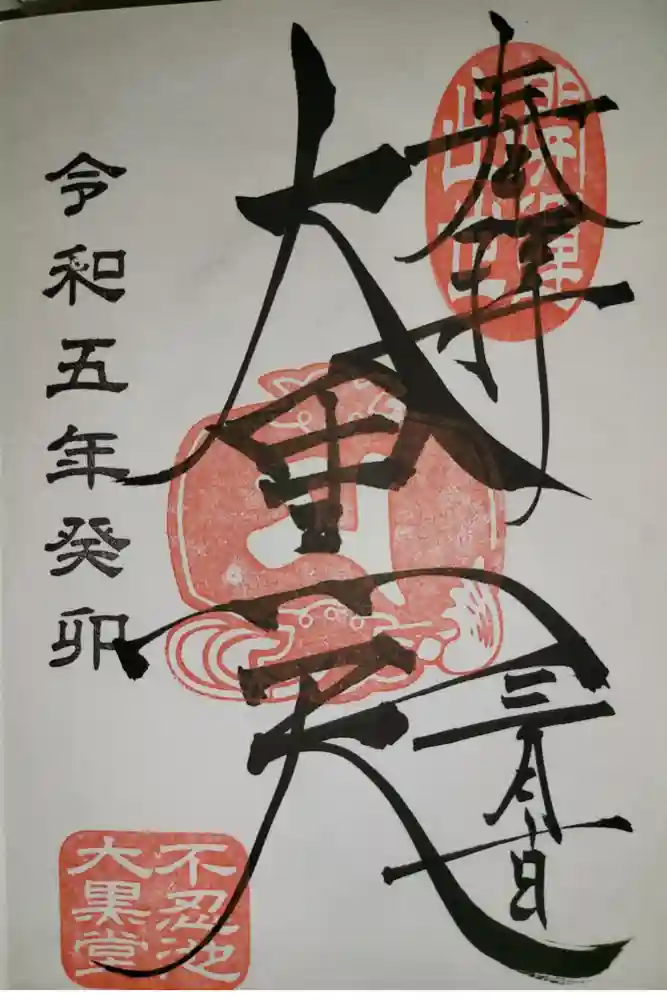 奉拝
開運
出世
大黒天
三月廿日
令和五年癸卯
不忍池
大黒堂